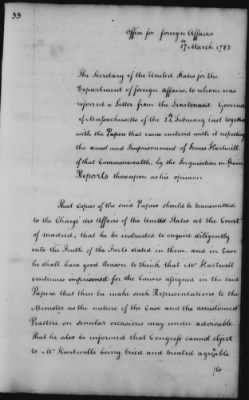 33
Office for foreign Affairs
17th March 1785
The Secretary of the United States for the
Department of foreign Affairs, to whom was
referred a Letter from the Lieutenant Governor
of Massachusetts of the 2d February last together
with the Papers that came enclosed with it respecting
the arrest and Imprisonment of Hartwell
of that Commonwealth, by the Inquisition in Spain
Reports thereupon as his opinion
That Copies of the said Papers should be transmitted
to the Chargé des Affairs of the United States at the Court
of Madrid; that he be instructed to enquire diligently
into the Truth of the Facts stated in them. and in Case
he shall have good Reason to think that Mr Hartwell
continues imprisoned for the Causes assigned in the said
Papers that then he make such Representations to the
Minister as the nature of the Case and the accustomed
Practice on similar occasions may render adviseable
That he also be informed that Congress cannot object
to Mr Hartwells being tried and treated agreable
to